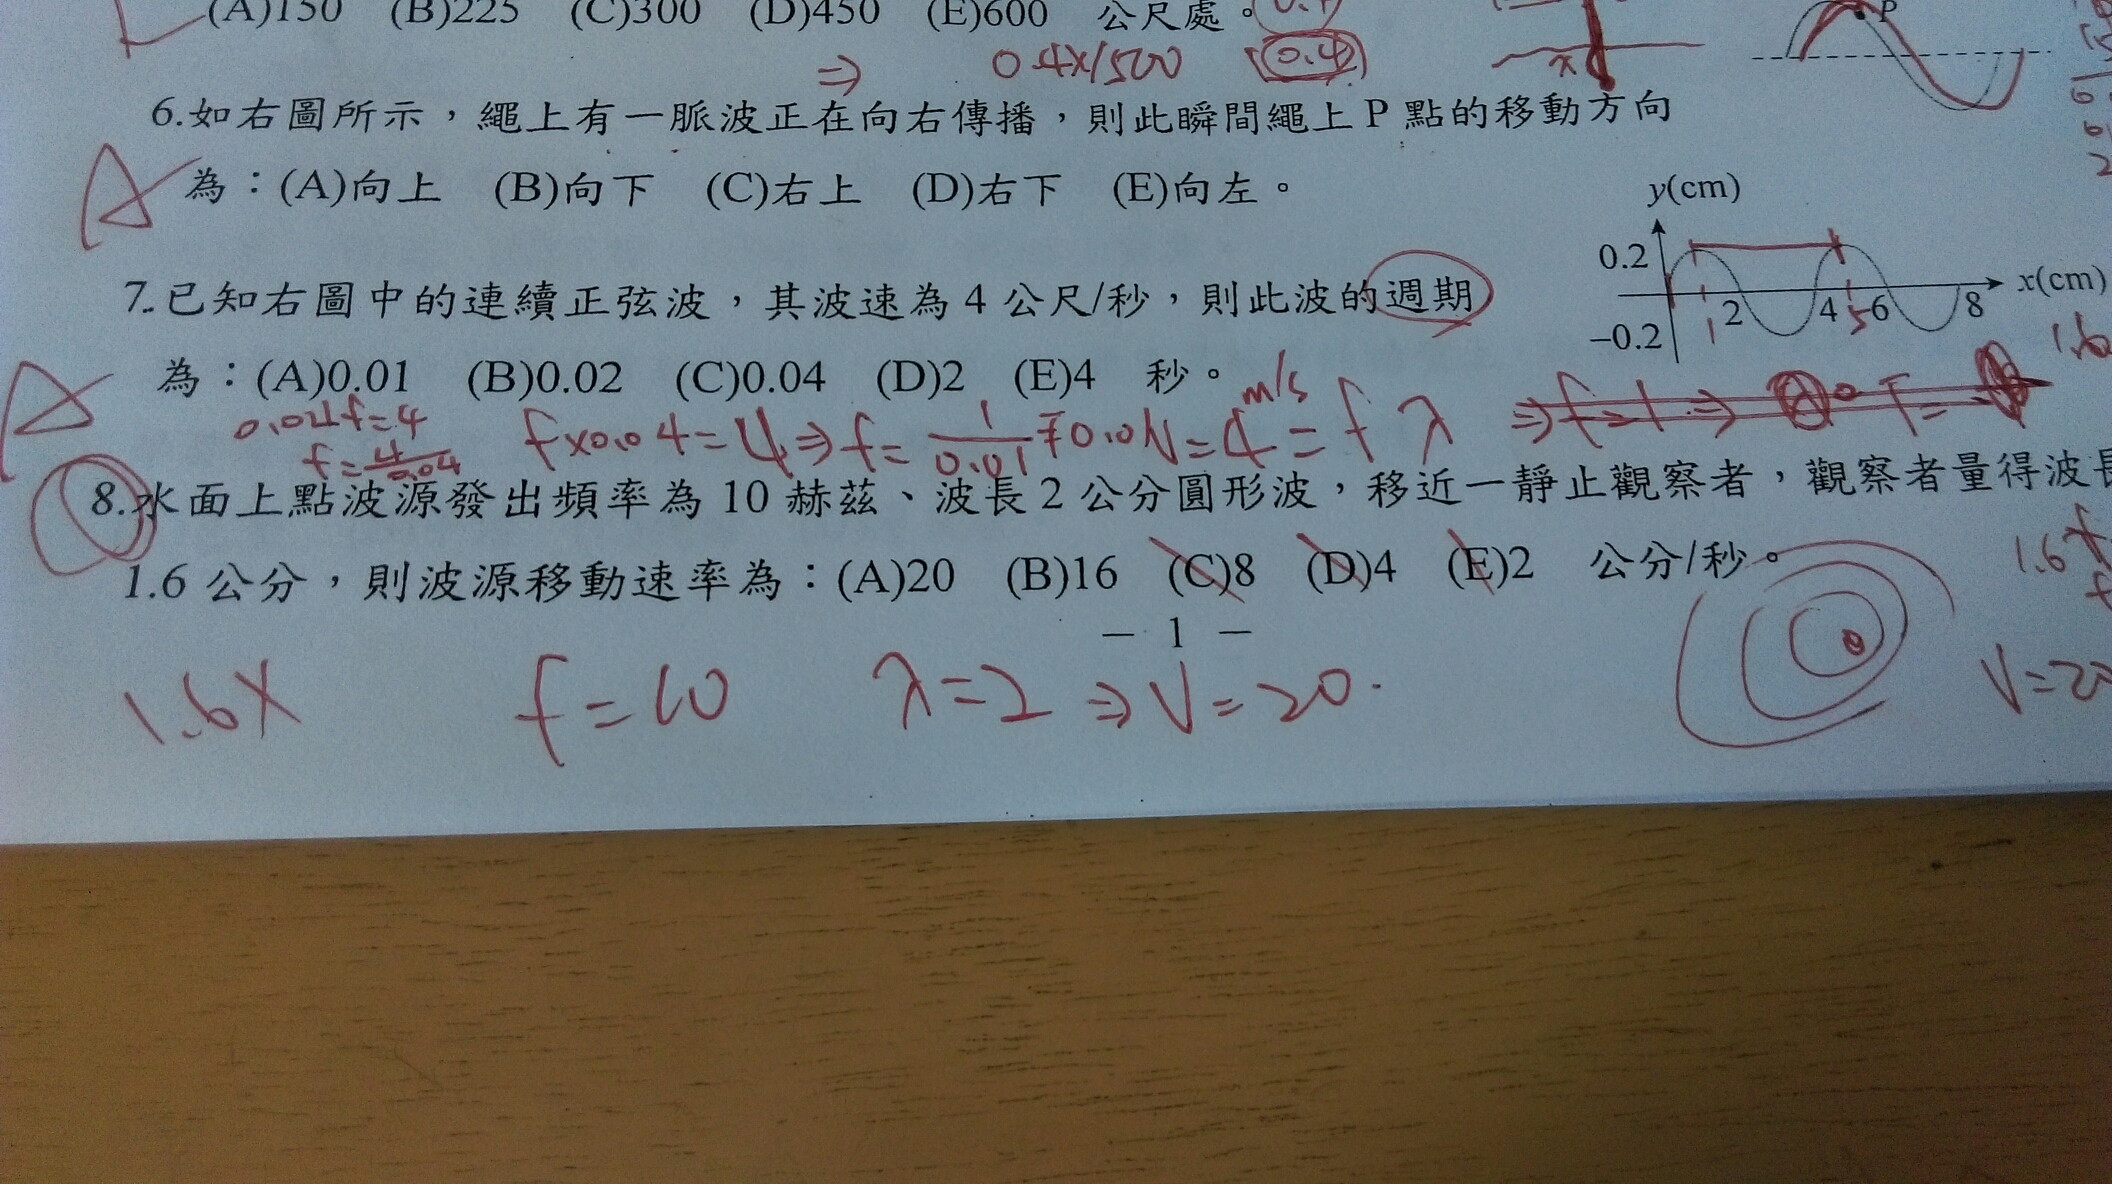 (A)150 (B)225 (C)300 (D)450 (E)600 公尺處。
⇒ 0.4×1500 0.4
P
6.如右圖所示，繩上有一脈波正在向右傳播，則此瞬間繩上P點的移動方向
為：(A)向上 (B)向下 (C)右上 (D)右下 (E)向左。
A
y(cm)
0.2
x(cm)
2 4 6 8
1 5
−0.2
7.已知右圖中的連續正弦波，其波速為4公尺/秒，則此波的週期
為：(A)0.01 (B)0.02 (C)0.04 (D)2 (E)4 秒。
A
0.04f=4
f=4/0.04
f×0.04=4⇒f=1/0.01
m/s
4=fλ
8.水面上點波源發出頻率為10赫茲、波長2公分圓形波，移近一靜止觀察者，觀察者量得波長
1.6公分，則波源移動速率為：(A)20 (B)16 (C)8 (D)4 (E)2 公分/秒。
1.6f
− 1 −
1.6X f=10 λ=2⇒V=20.